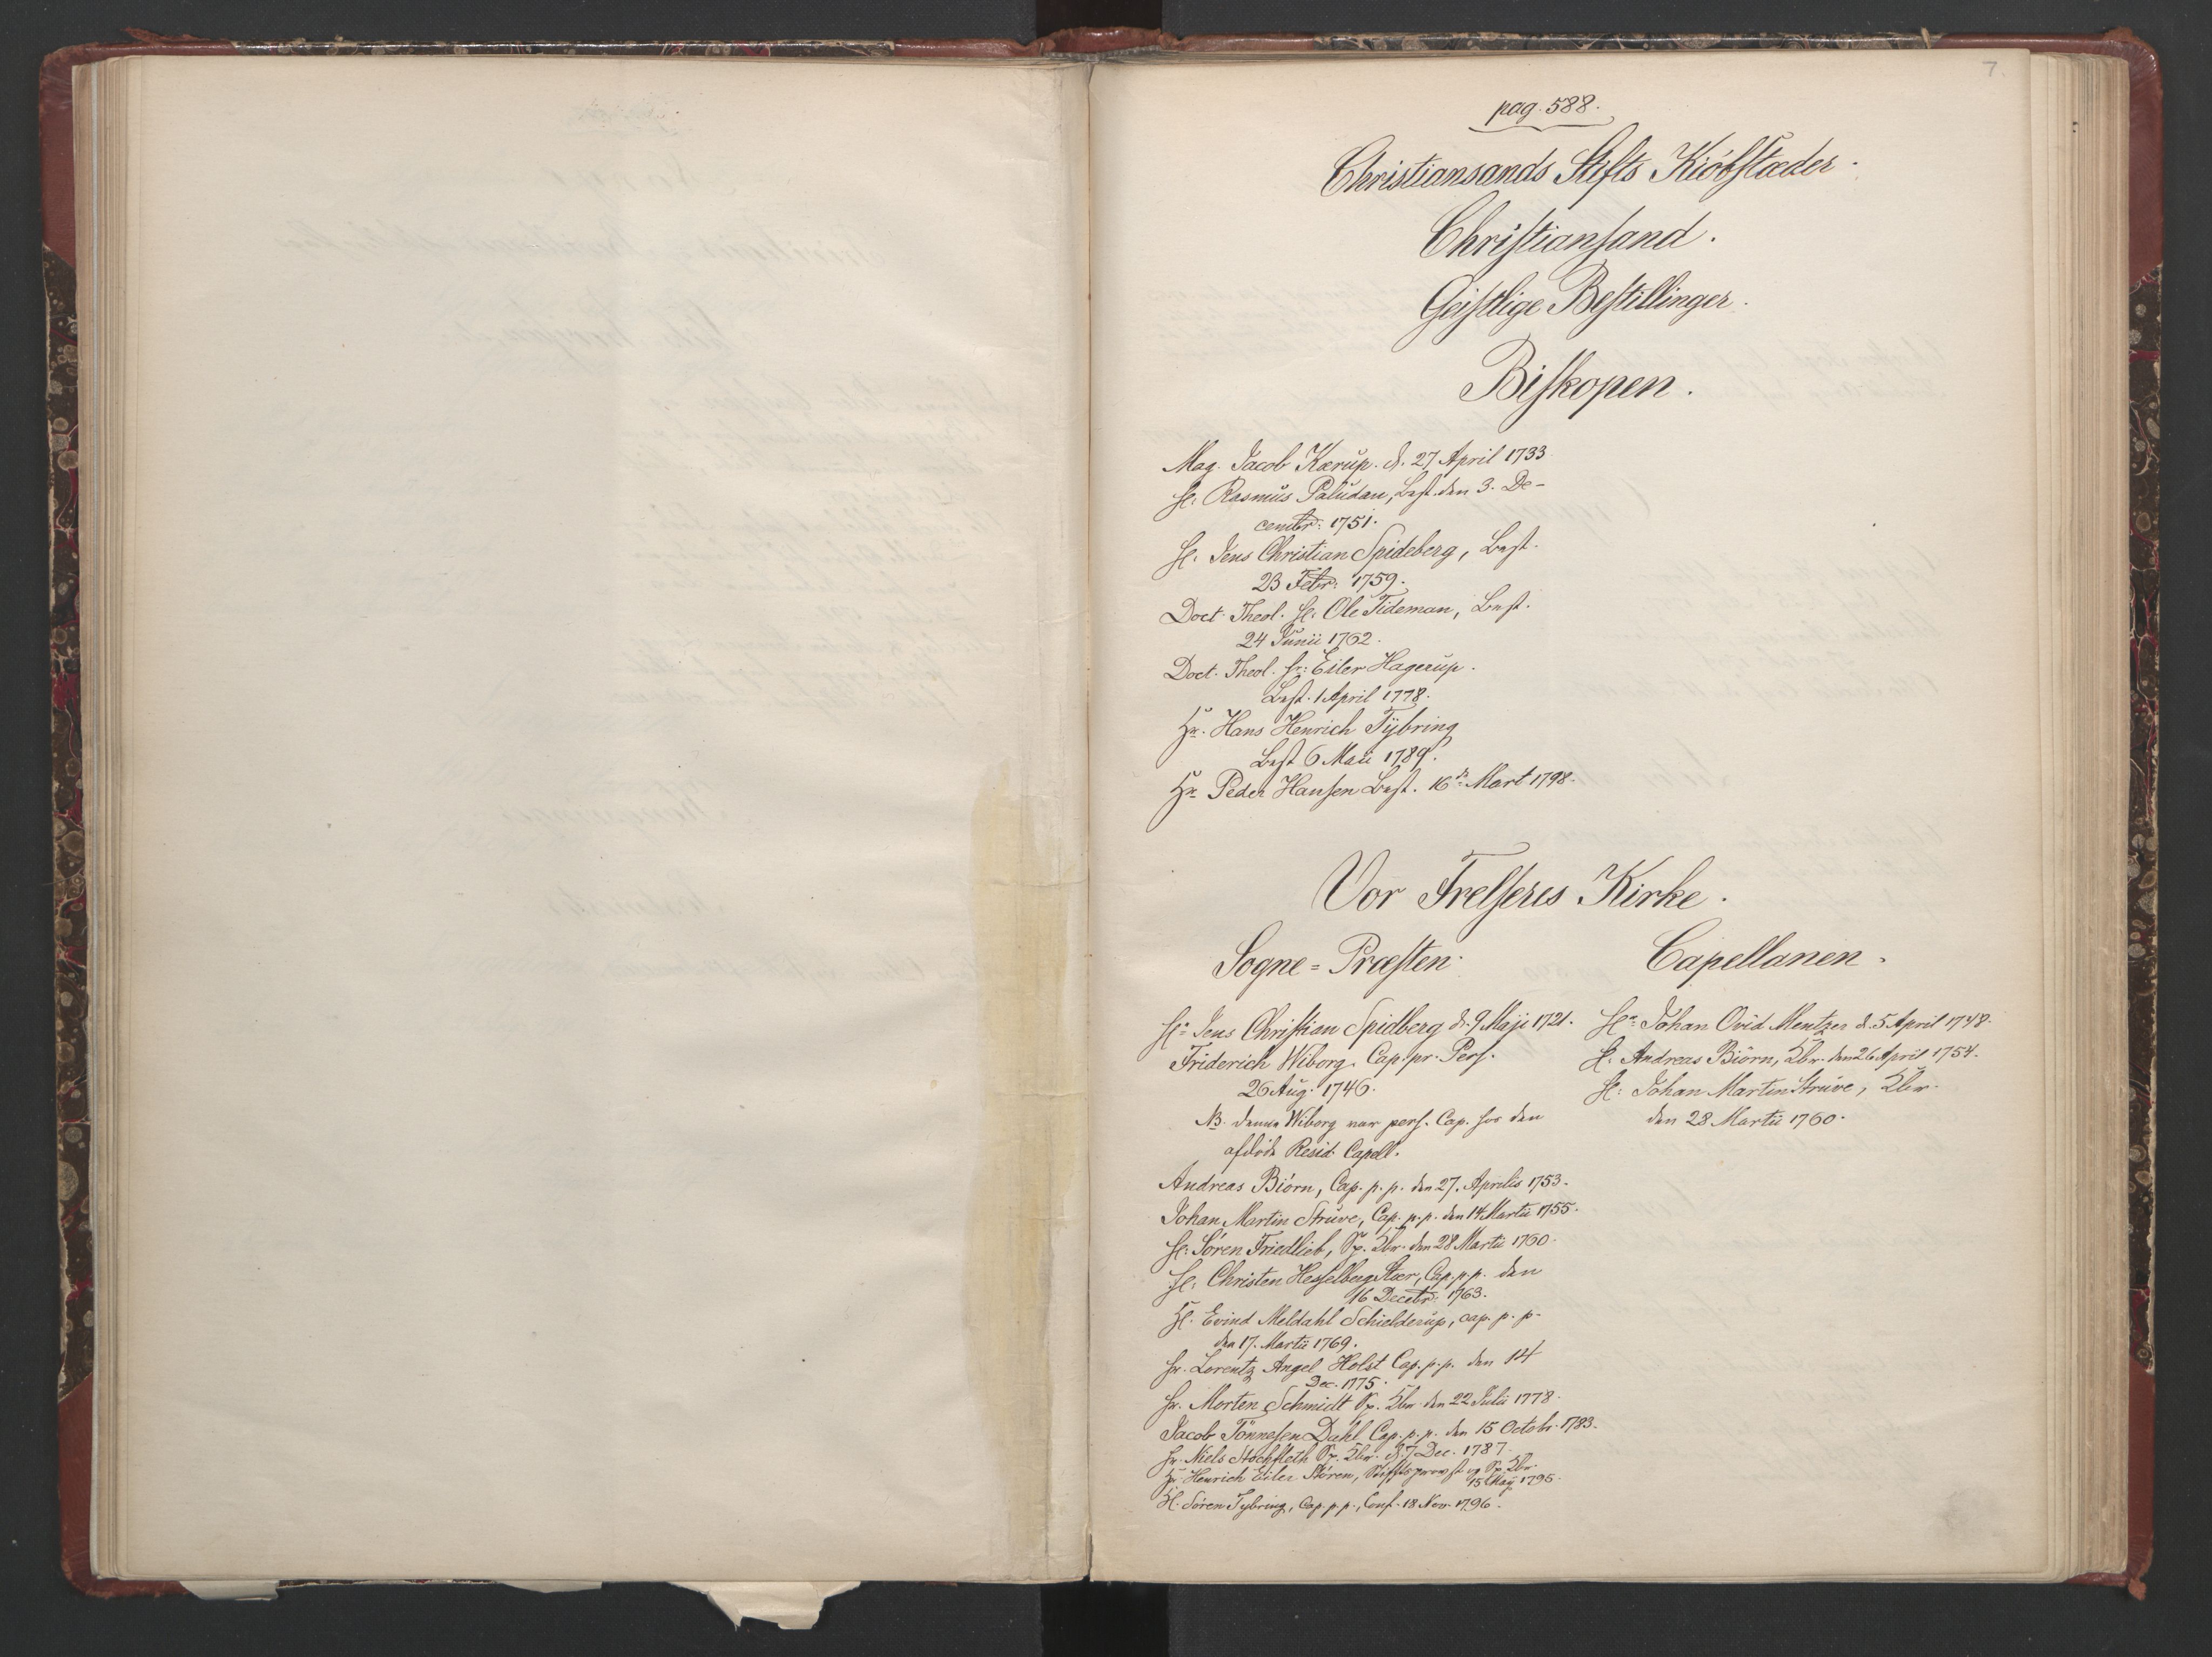 7.
pag. 588.
Christiansands Stifts Kiöbstæder.
Christiansand.
Geistlige Bestillinger.
Biskopen.
Mag. Jacob Kærup. d. 27 April 1733
H. Rasmus Paludan, Best. den 3. De-
cembr: 1751.
H. Jens Christian Spideberg, Best.
23 Febr: 1759.
Doct. Theol. H. Ole Tideman, Best.
24 Junii 1762.
Doct. Theol. Hr: Eiler Hagerup.
Best. 1 April 1778.
Hr. Hans Henrich Tÿbring
Best 6 Maii 1789.
Hr. Peder Hansen Best. 16de Mart 1798.
Vor Frelseres Kirke.
Sogne=Præsten.
Hr. Jens Christian Spidberg d. 9 Maji 1721.
Friderich Wiborg. Cap. pr. Pers.
26 Aug. 1746.
NB. denne Wiborg var pers. Cap. hos den
afdöde Resid. Capell.
Andreas Biörn, Cap. p. p. den 27. Aprilis 1753.
Johan Martin Struve, Cap. p. p. den 14 Martii 1755.
H: Sören Friedlieb, Sp. Kbr. den 28 Martii 1760.
H. Christen Hesselberg Stær, Cap. p. p. den
16 Decebr: 1763.
H. Evind Meldahl Schielderup, cap. p. p.
den 17. Martii 1769.
Hr. Lorentz Angel Holst Cap. p. p. den 14
Dec. 1775.
Hr. Morten Schmidt Sp. Kbr. den 22 Julii 1778.
Jacob Tönnesen Dahl Cap. p. p. den 15 Octobr. 1783.
Hr. Niels Stochfleth Sp. Kbr. d. 7 Dec. 1787.
Hr. Henrich Eiler Stören, Stiftsprovst og Sp. Kbr.
15 Maÿ 1795.
H. Sören Tybring, Cap. p. p., Conf. 18 Nov. 1796.
Capellanen.
Hr. Johan Ovid Mentzer d. 5 April 1748.
H. Andreas Biörn, Kbr. den 26 April 1754.
H: Johan Martin Struve, Kbr.
den 28 Martii 1760.